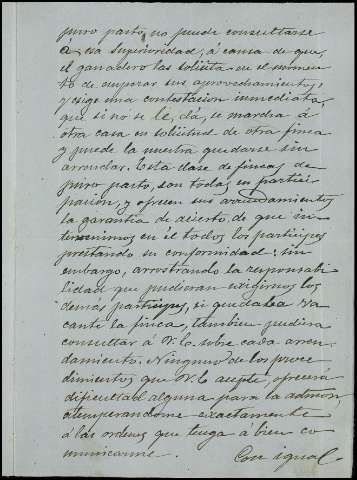 puro pasto, no puede consultarse
á esa Superioridad, á causa de que,
el ganadero las solicita en el momen-
to de empezar sus aprovechamientos,
y exige una contestacion inmediata,
que si no se le dá, se marcha á
otra casa en solicitud de otra finca
y puede la nuestra quedarse sin
arrendar. Esta clase de fincas de
puro pasto, son todas en partici-
pacion, y ofrecen sus arrendamientos
la garantia de acierto, de que in-
tervenimos en él todos los participes
prestando su conformidad: sin
embargo, arrostrando la responsabi-
lidad que pudieran exigirnos los
demás participes, si quedaba va-
cante la finca, tambien pudiera
consultar á V.E. sobre cada arren-
damiento. Ninguno de los proce-
dimientos que V.E. acepte, ofrecerá
dificultad alguna para la admon,
atemperandome exactamente
á las ordenes que tenga á bien co-
municarme. Con igual